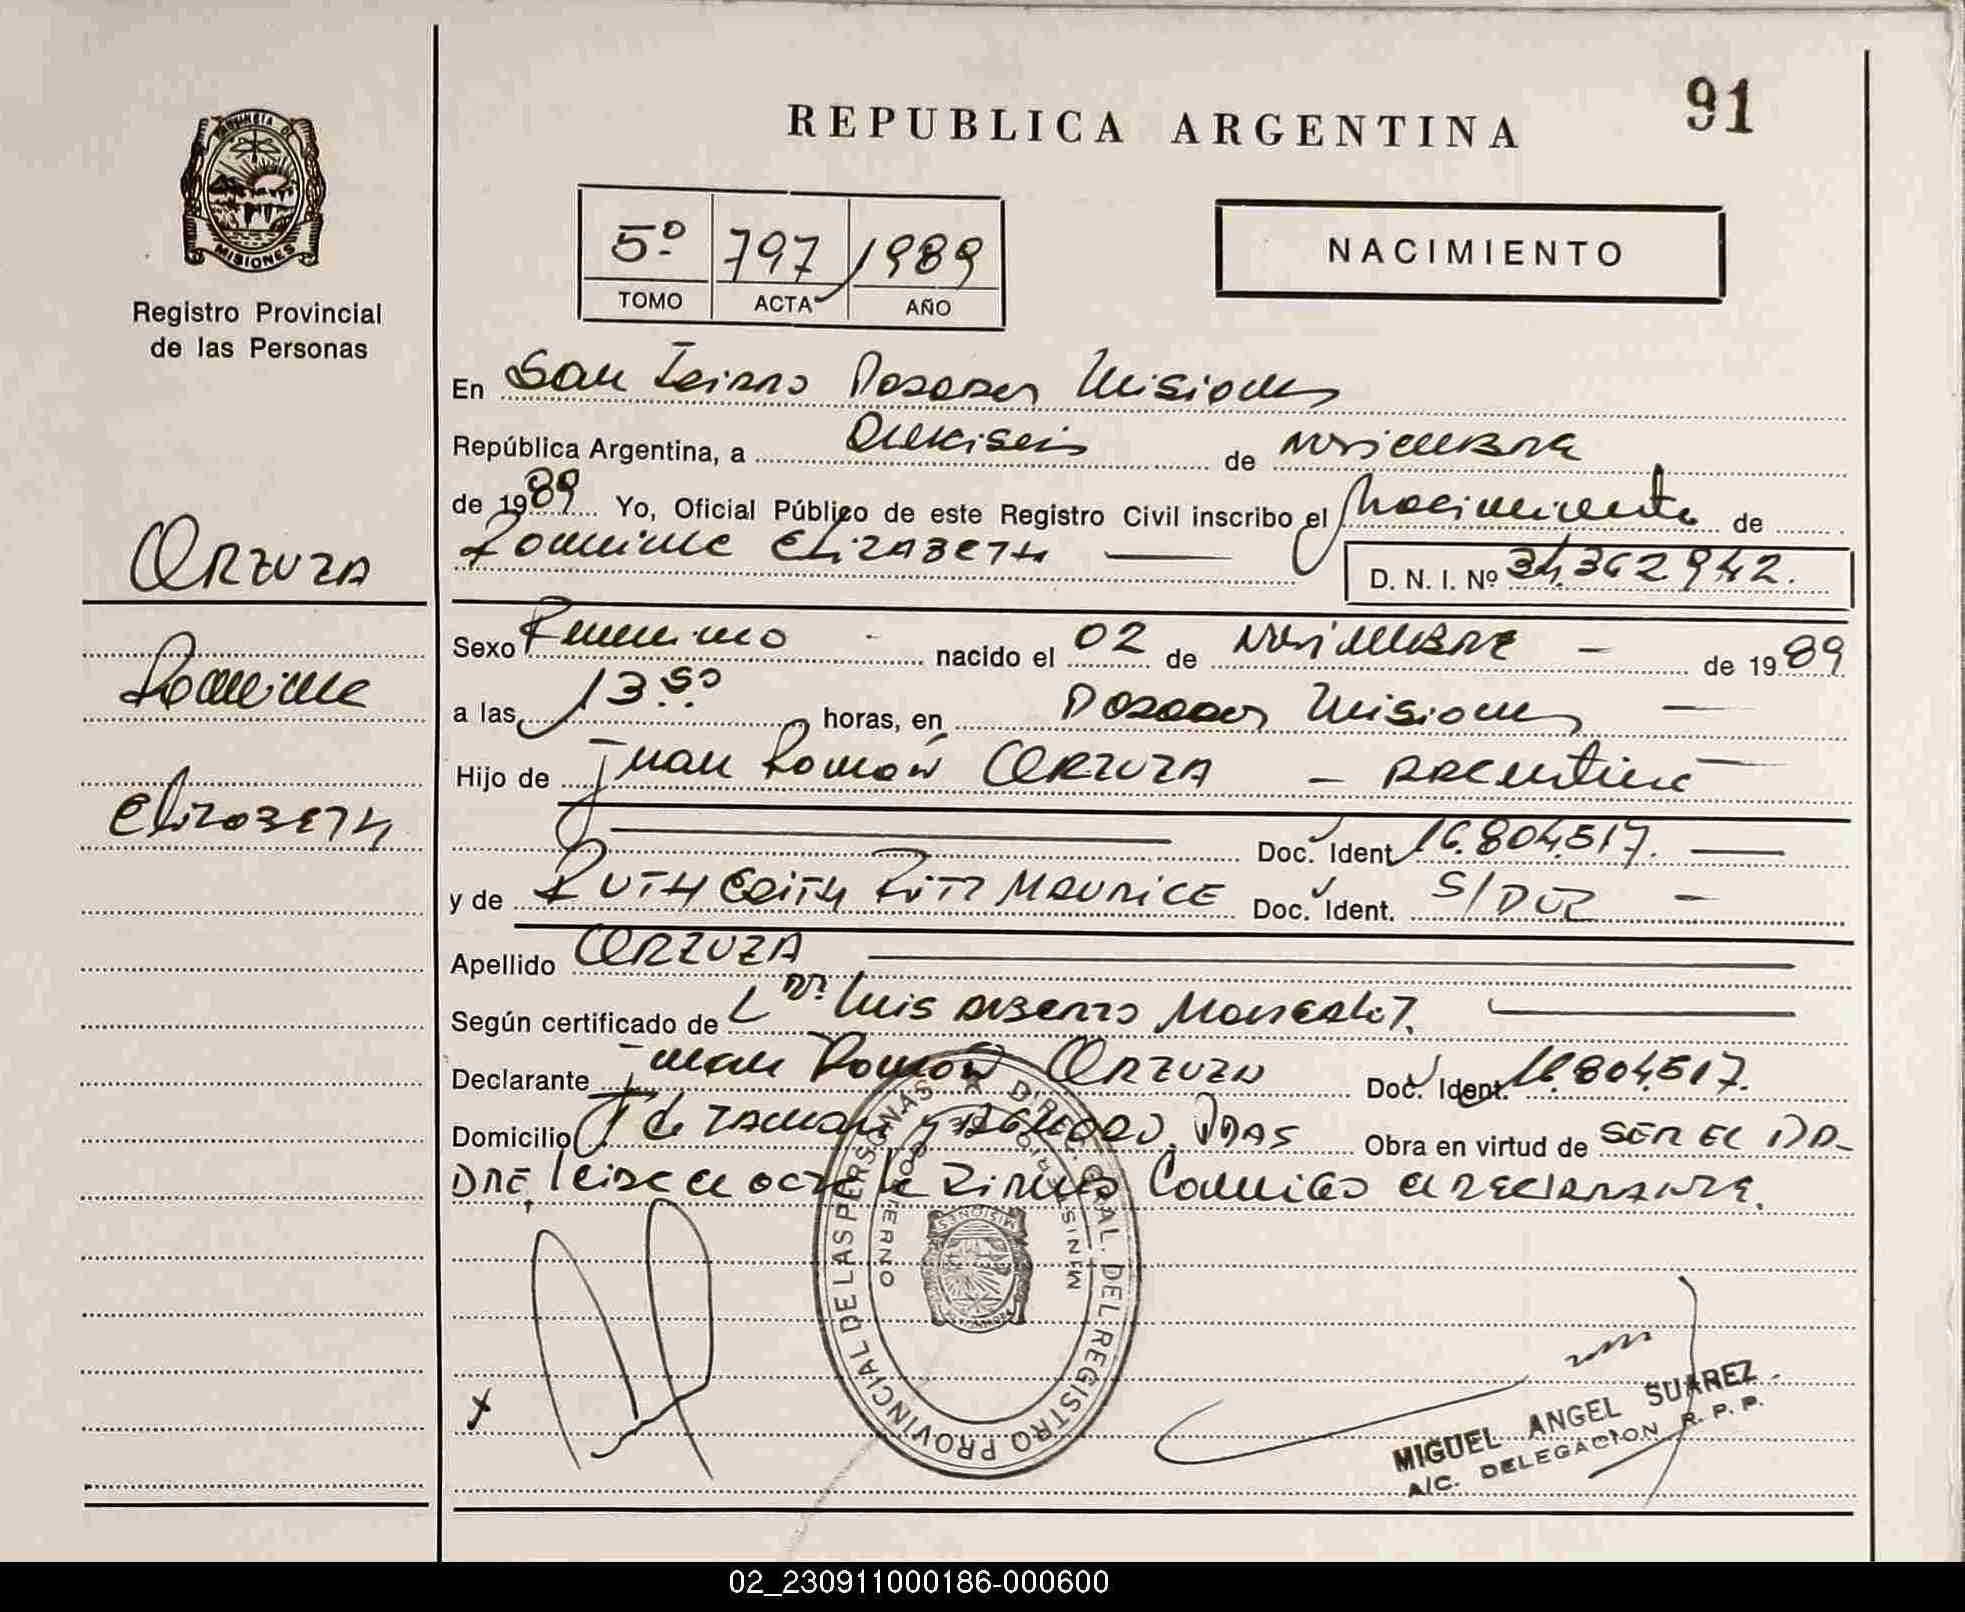 91
REPUBLICA ARGENTINA
PROVINCIA DE
MISIONES
Registro Provincial
de las Personas
5º 797 1989
TOMO ACTA AÑO
NACIMIENTO
En San Isidro Posadas Misiones
República Argentina, a Dieciseis de Noviembre
de 1989 Yo, Oficial Público de este Registro Civil inscribo el Nacimiento de
Romina ELIZABETH
D. N. I. Nº 34.362.942.
ORZUZA
Romina
ELIZABETH
Sexo Femenino nacido el 02 de Noviembre de 1989
a las 13 50 horas, en Posadas Misiones
Hijo de Juan Ramón ORZUZA - Argentino
Doc. Ident. 16.804.517.
y de RUTH EDITH MAURICE Doc. Ident. S/DOC
Apellido ORZUZA
Según certificado de Dr. Luis Alberto
Declarante Juan Ramón ORZUZA Doc. Ident. 16.804.517.
Domicilio y PDAS Obra en virtud de SER EL PA-
DRE, leida el acta la firma conmigo el declarante.
DIREC. GRAL. DEL REGISTRO PROVINCIAL DE LAS PERSONAS
MINISTERIO DE GOBIERNO
MISIONES
MIGUEL ANGEL SUAREZ
A/C. DELEGACION R. P. P.
02_230911000186-000600